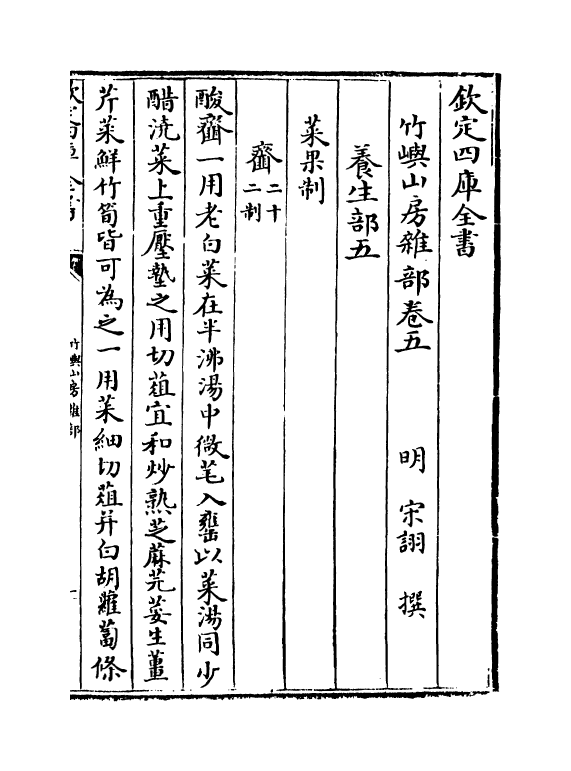 欽定四庫全書
竹嶼山房雜部卷五　明　宋詡　撰
養生部五
菜果制
齏二十二制
酸齏一用老白菜在半沸湯中微芼入罋以菜湯同少
醋澆菜上重壓墊之用切葅宜和炒熟芝蔴芫荽生薑
芹菜鮮竹筍皆可為之一用菜細切葅并白胡蘿蔔條
欽定四庫全書
竹嶼山房雜部
一